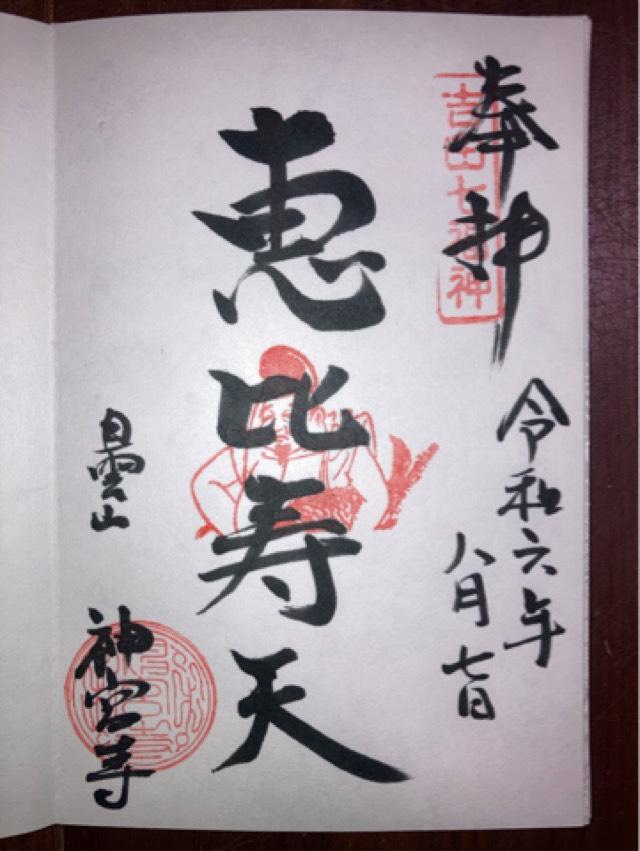 奉拝
吉田七福神
令和六年
八月七日
恵比寿天
白雲山
神宮寺